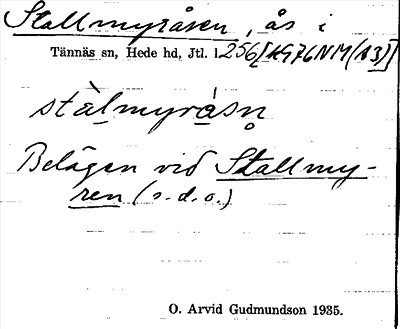 Stallmyråsen, ås i
Tännäs sn, Hede hd, Jtl. l. 256 [AG76NM(A3)]
stàlmyråsn̥
Belägen vid Stallmy-
ren (s.d.o.)
O. Arvid Gudmundson 1935.